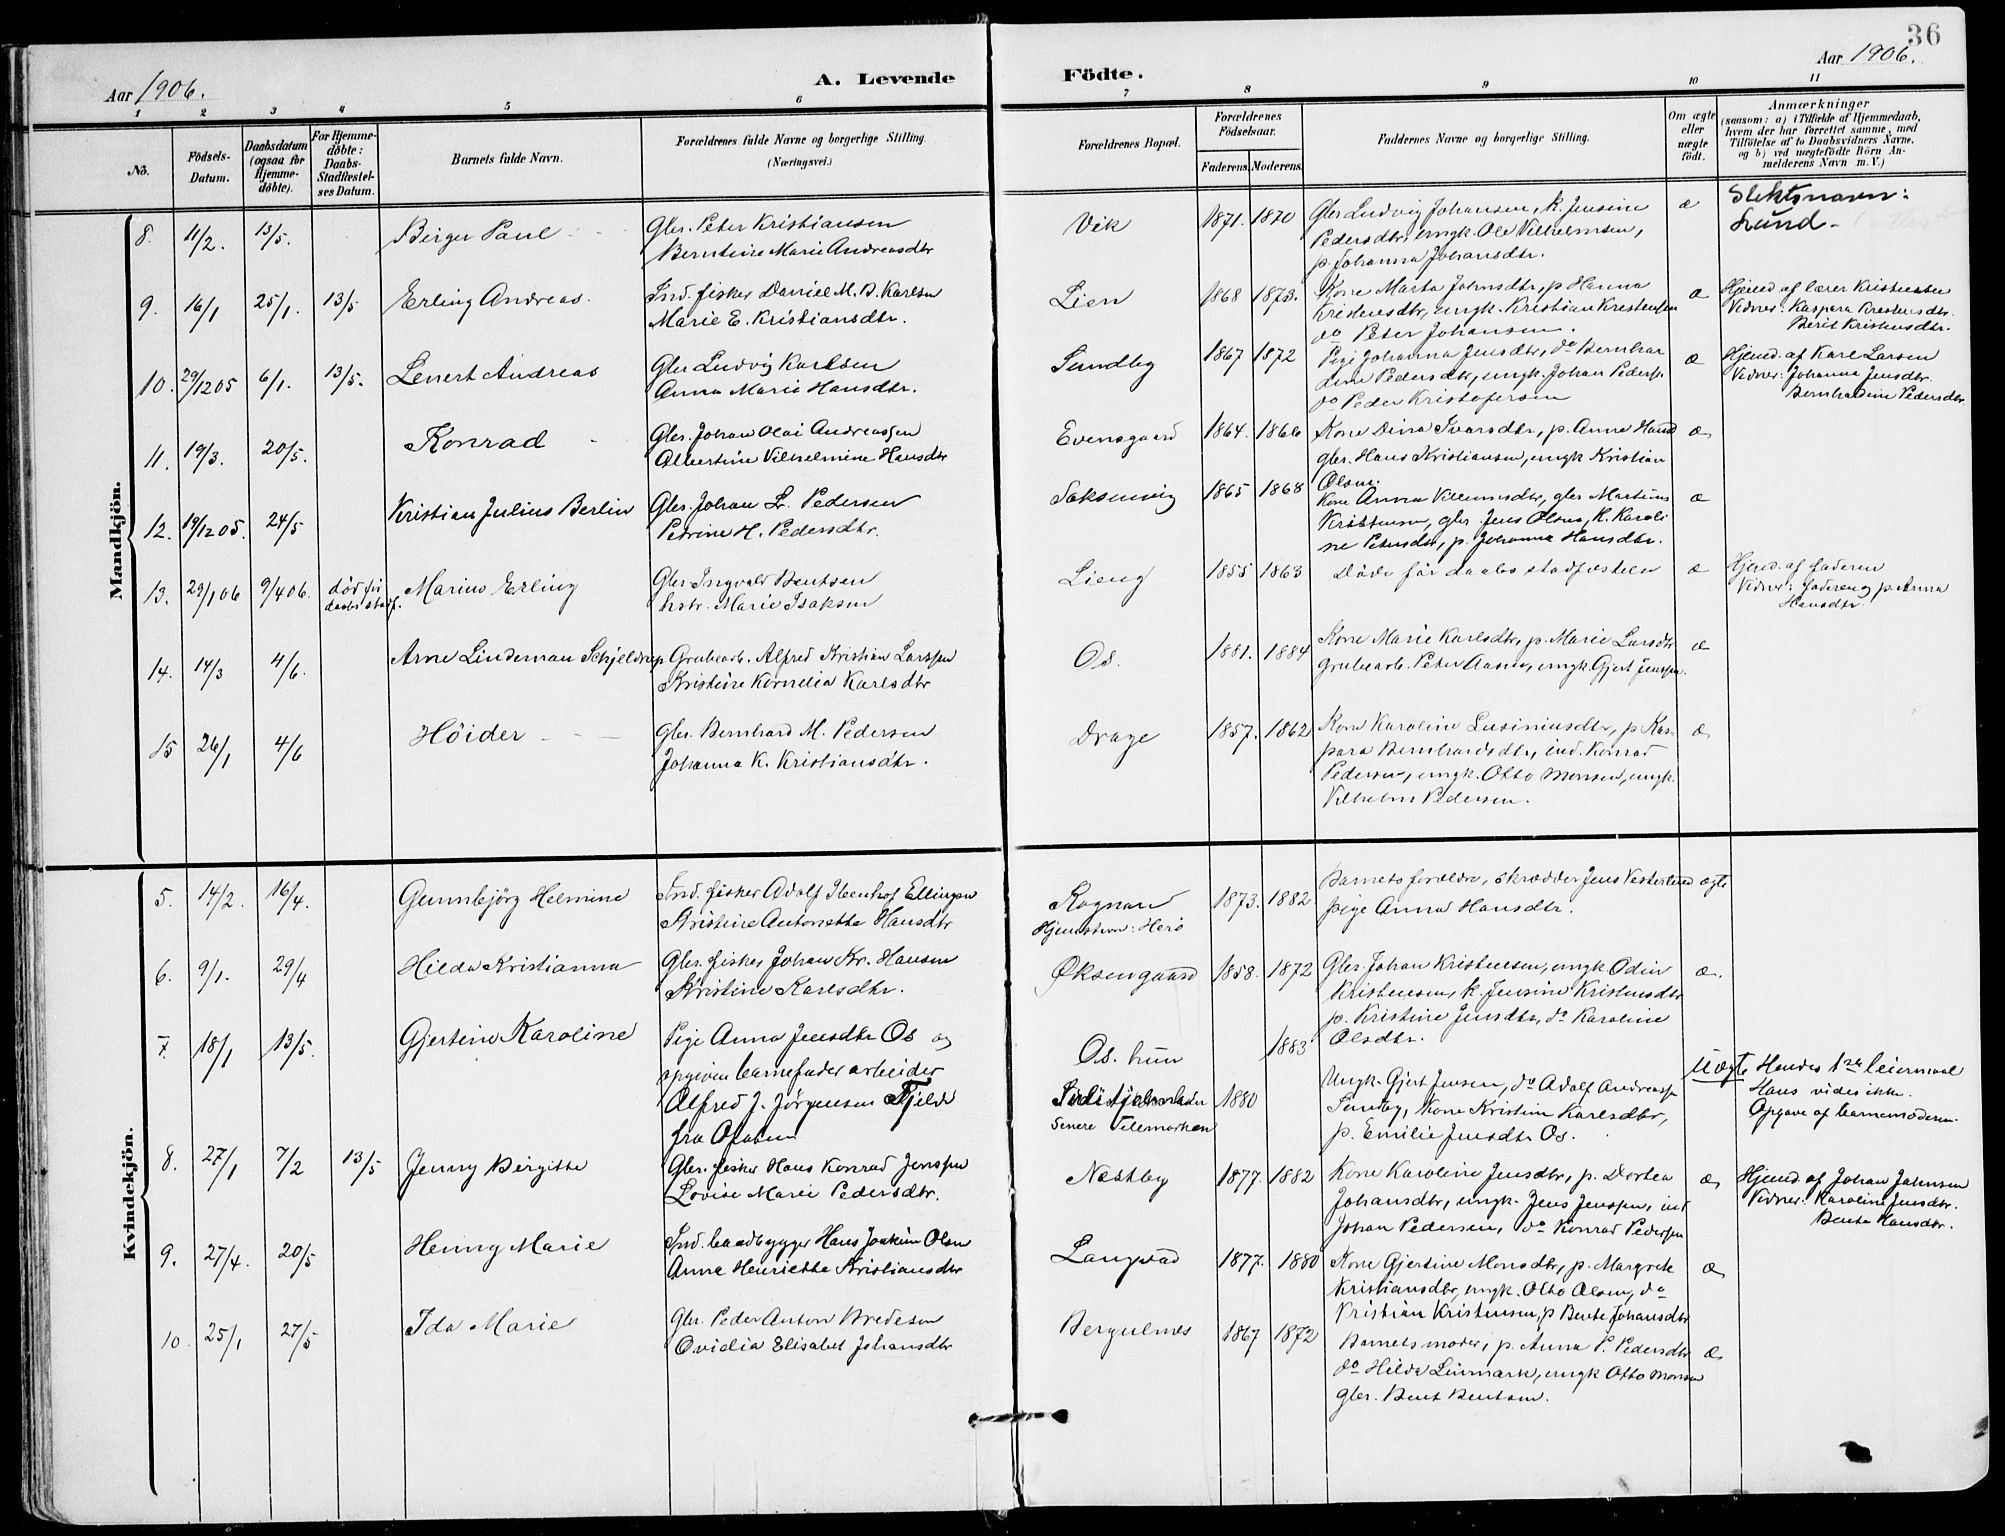 36
Aar 1906.
A. Levende Födte.
Aar 1906.
1 2 3 4 5 6 7 8 9 10 11
No.
Födsels-Datum.
Daabsdatum (ogsaa for Hjemme-döbte).
For Hjemme-döbte: Daabs-Stadfæstel-ses Datum.
Barnets fulde Navn.
Forældrenes fulde Navne og borgerlige Stilling.
(Næringsvei.)
Forældrenes Bopæl.
Forældrenes Födselsaar.
Faderens. Moderens.
Faddernes Navne og borgerlige Stilling.
Om ægte eller uægte födt.
Anmærkninger
(saasom: a) i Tilfælde af Hjemmedaab, hvem der har forrettet samme, med Tilföielse af to Daabsvidners Navne, og b) ved uægtefödte Börn An-melderens Navn m. V.)
Mandkjön.
8. 11/2. 13/5. Birger Paul Gbr. Peter Kristiansen Vik 1871. 1870 Gbr Ludvig Johansen, k. Jensine æ Slektsnavn:
Berntine Marie Andreasdtr Pedersdtr, ungk. Ole Vilhelmsen, Lund
p. Johanna Johansdtr.
9. 16/1 25/1. 13/5 Erling Andreas. Ind. fisker Daniel M. B. Karlsen Lien 1868 1873. Kone Marta Johnsdtr, p Hanna æ Hjemd. af lærer Kristensen
Marie E. Kristiansdtr. Kristensdtr, ungk. Kristian Kristensen Vidner: Kaspara Kristensdtr.
do Peter Johansen. Berit Kristensdtr.
10. 29/12 05 6/1. 13/5. Lenert Andreas Gbr Ludvig Karlsen Sundby 1867 1872 Pige Johanna Jensdtr, do Bernhar æ Hjemd. af Karl Larsen
Anna Marie Hansdtr. dine Pedersdtr, ungk. Johan Peders. Vidner: Johanna Jensdtr.
do Peder Kristofersen Bernhardine Pedersdtr.
11. 19/3. 20/5. Konrad Gbr. Johan Olai Andreassen Evensgaard 1864. 1866 Kone Dina Ivarsdtr, p. Anna Hansd æ
Albertine Vilhelmine Hansdtr gbr. Hans Kristiansen, ungk Kristian
Olsen.
12. 19/12 05. 24/5 Kristian Julius Berlin Gbr. Johan L. Pedersen Saksenvig 1865 1868 Kone Anna Villumsdtr, gbr Martinus æ
Petrine H. Pedersdtr. Kristensen, gbr Jens Olsen, k. Karoli
ne Petersdtr, p. Johanna Hansdtr.
13. 29/1 06 9/4 06. död før daabs stadf. Marius Erling Gbr Ingvald Bentsen Lieng 1855 1863 Døde før daabsstadfæstelsen æ Hjemd. af faderen
hstr. Marie Isaksen Vidner: faderen og p. Anna
Hansdtr.
14. 14/3 4/6. Arne Lindeman Schjeldrup Grubearb. Alfred Kristian Larssen Os. 1881. 1884 Kone Marie Karlsdtr, p. Marie Larsdtr æ
Kristine Kornelia Karlsdtr grubearb. Peter Aasen, ungk. Gjert Jenssen.
15 26/1 4/6 Höider Gbr. Bernhard M. Pedersen Drage 1857. 1862 Kone Karoline Lusiniusdtr, p Kas- æ
Johanna K. Kristiansdtr. para Bernhardsdtr, ind. Konrad
Pedersen, ungk. Otto Monsen, ungk.
Vilhelm Pedersen.
Kvindekjön.
5. 14/2. 16/4. Gunnbjörg Helmine Ind. fisker Adolf Ibenhof Ellingsen Rognan 1873. 1882 Barnets forældre, skrædder Jens Vesterlund ægte
Kristine Antonette Hansdtr Hjemstavn: Herö pige Anna Hansdtr.
6. 9/1. 29/4 Hilda Kristianna Gbr. fisker Johan Kr. Hansen Øksengaard 1858. 1872 Gbr. Johan Kristensen, ungk Odin æ.
Kristine Karlsdtr. Kristensen, k. Jensine Kristensdtr
p. Kristine Jensdtr, do Karoline
Olsdtr.
7. 18/1 13/5. Gjertine Karoline Pige Anna Jensdtr Os og Os. hun 1883
opgiven barnefader arbeider Ungk. Gjert Jensen, do Adolf Andreassen Uægte Hendes 1ste leiermaal
Alfred J. Jörgensen Fjeld 1880 Sundby, Kone Kristine Karlsdtr, Hans vides ikke.
fra senere Telemarken p. Emilie Jensdtr Os. Opgave af barnemoderen.
8. 27/1 7/2 13/5 Jenny Birgitte Gbr. fisker Hans Konrad Jenssen Nestby 1877. 1882 Kone Karoline Jensdtr, p. Dortea æ Hjemd. af Johan Johnsen
Lovise Marie Pedersdtr. Johansdtr, ungk. Jens Jenssen, ind Vidner: Karoline Jensdtr.
Johan Pedersen, do Konrad Pedersen Bente Hansdtr.
9. 27/4. 20/5 Henny Marie Ind. baadbygger Hans Joakim Olsen Langvad 1877. 1880 Kone Gjertine Monsdtr, p. Margrete æ
Anna Henriette Kristiansdtr Kristiansdtr, ungk. Otto Olsen, do
Kristian Kristensen, p Bente Johansdtr
10 25/1 27/5 Ida Marie Gbr. Peder Anton Bredesen Bergulnes 1867 1872 Barnets moder, p. Anna P. Pedersdtr æ
Ovidia Elisabet Johansdtr do Hilda Linmark, ungk Otto Monsen
gbr. Bent Bentsen.